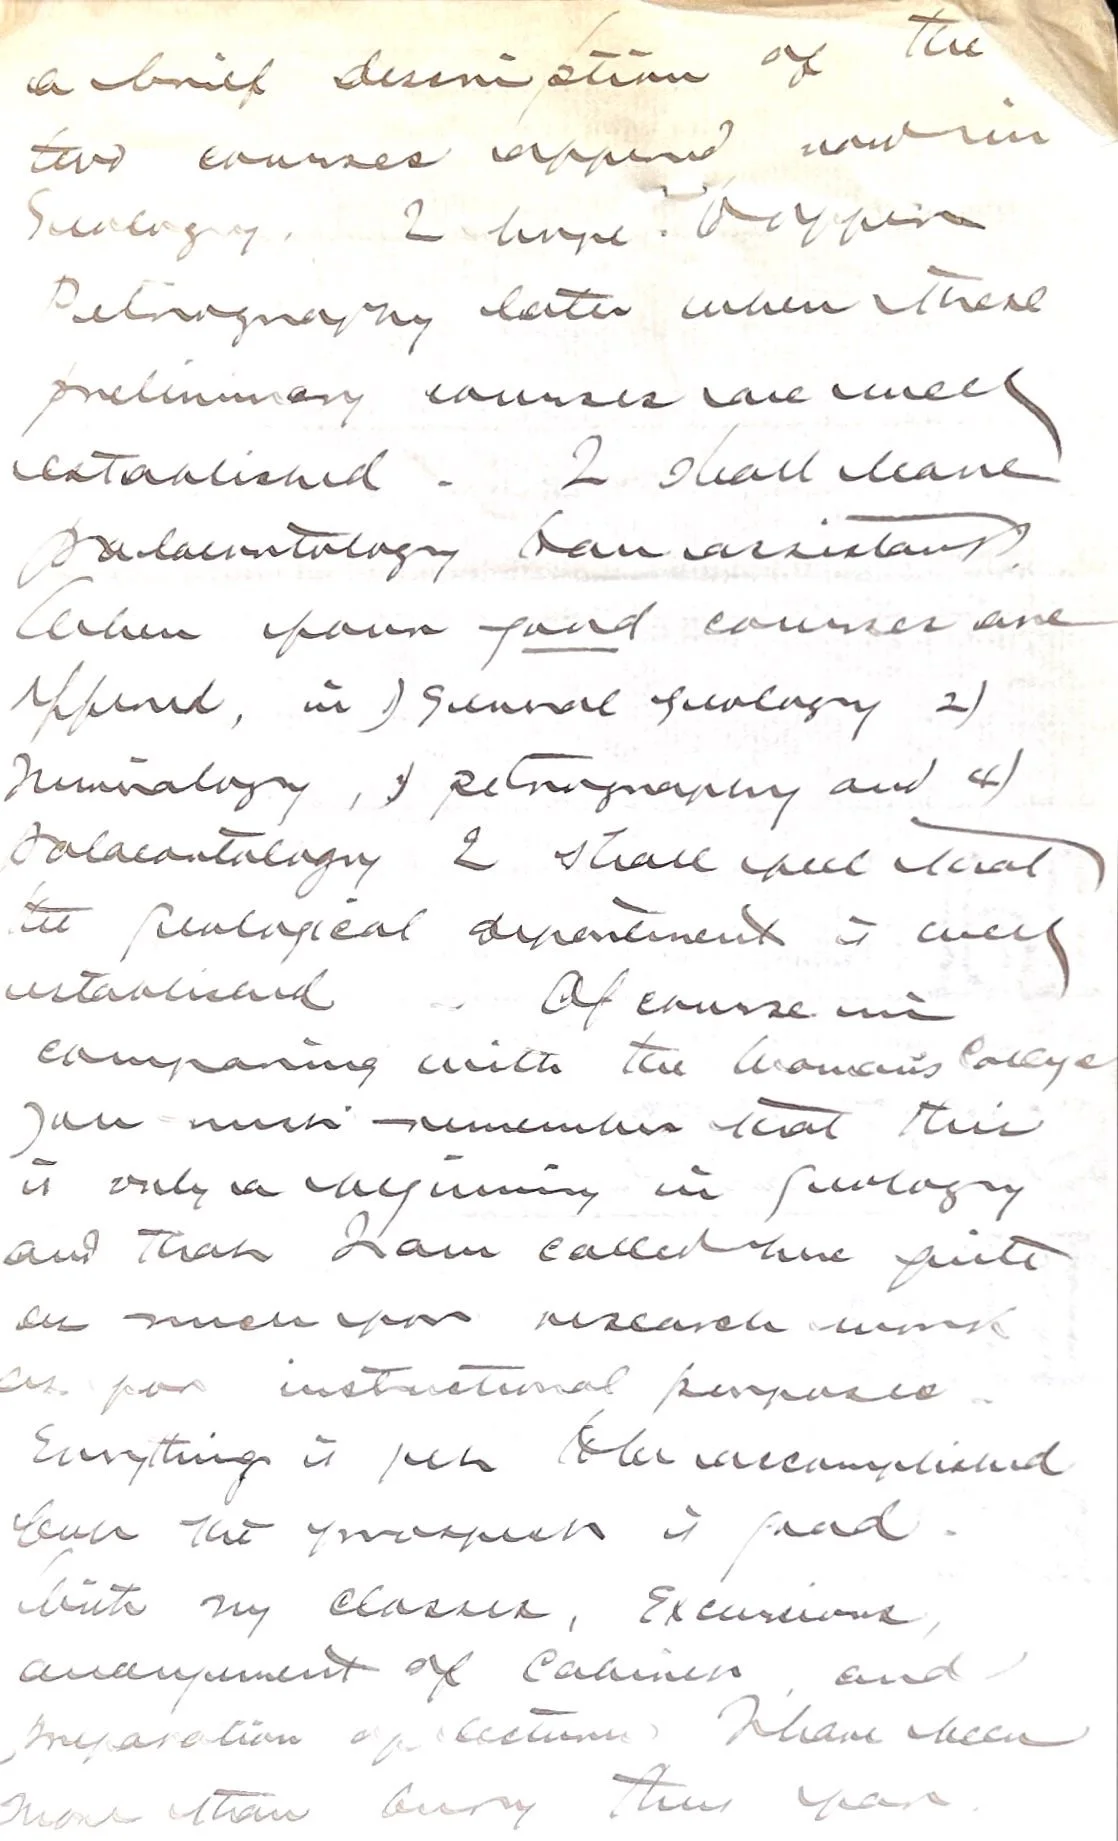 a brief description of the
two courses offered now in
Geology. I hope to offer
Petrography later when these
preliminary courses are well
established - I shall leave
palaeontology to an assistant.
When four good courses are
offered, in 1) General Geology 2)
Mineralogy, 3) petrography and 4)
Palaeontology I shall feel that
the geological department is well
established - Of course in
comparing with the Woman's College
you must remember that this
is only a beginning in Geology
and that I am called here quite
as much for research work
as for instructional purposes -
Everything is yet to be accomplished
but the prospect is good -
With my classes, Excursions,
arrangement of Cabinet, and
preparation of lectures I have been
more than busy thus far.